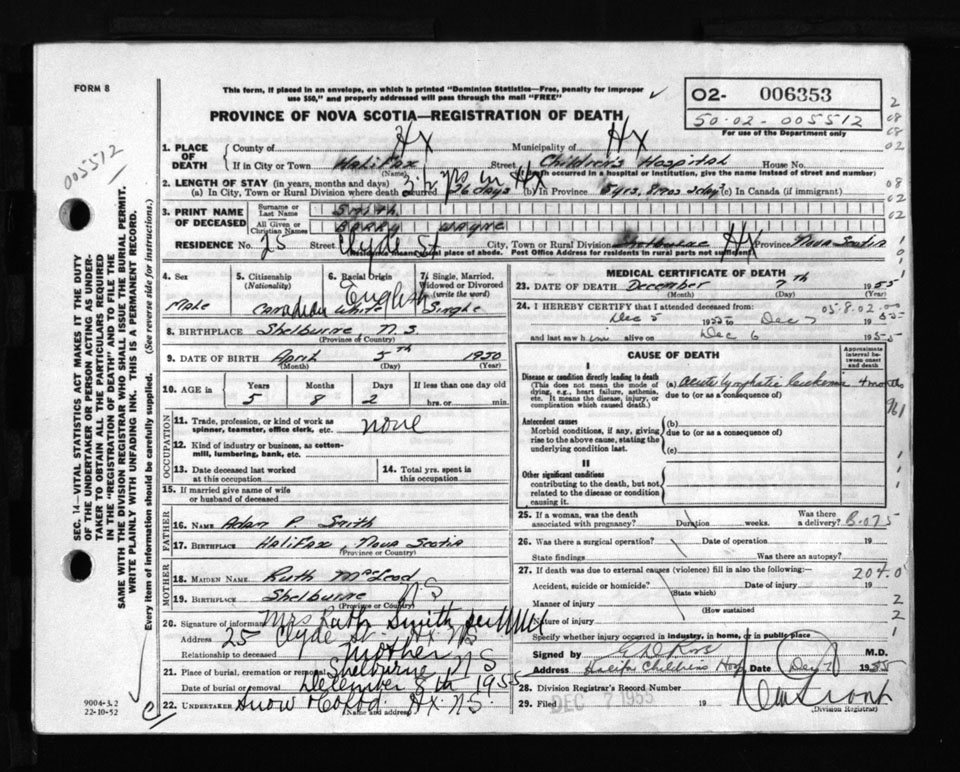 FORM 8
This form, if placed in an envelope, on which is printed "Dominion Statistics—Free, penalty for improper
use $50," and properly addressed will pass through the mail "FREE"
02- 006353
50-02-005512
For use of the Department only
PROVINCE OF NOVA SCOTIA—REGISTRATION OF DEATH
005512
1. PLACE OF DEATH
County of Hx Municipality of Hx
If in City or Town Halifax Street Children's Hospital House No.
(Name) (If death occurred in a hospital or institution, give the name instead of street and number)
2. LENGTH OF STAY (in years, months and days)
(a) In City, Town or Rural Division where death occurred 26 days (b) In Province 5 yrs. 8 mos 2 days (c) In Canada (if immigrant)
3. PRINT NAME OF DECEASED
Surname or Last Name Smith
All Given or Christian Names Barry Wayne
RESIDENCE No. 25 Street Clyde St. City, Town or Rural Division Shelburne Hx Province Nova Scotia
Residence means usual place of abode. Post Office Address for residents in rural parts not sufficient
4. Sex Male
5. Citizenship (Nationality) Canadian
6. Racial Origin English White
7. Single, Married, Widowed or Divorced (write the word) Single
8. BIRTHPLACE Shelburne N.S.
(Province of Country)
9. DATE OF BIRTH April 5th 1950
(Month) (Day) (Year)
10. AGE in Years Months Days If less than one day old
5 8 2 hrs. or min.
OCCUPATION
11. Trade, profession, or kind of work as spinner, teamster, office clerk, etc. none
12. Kind of industry or business, as cotton-mill, lumbering, bank, etc.
13. Date deceased last worked at this occupation
14. Total yrs. spent in this occupation
15. If married give name of wife or husband of deceased
FATHER
16. NAME Adam P. Smith
17. BIRTHPLACE Halifax, Nova Scotia
(Province or Country)
MOTHER
18. MAIDEN NAME Ruth McLeod
19. BIRTHPLACE Shelburne N.S
(Province or Country)
20. Signature of informant Mrs Ruth Smith
Address 25 Clyde St. Hx NS
Relationship to deceased Mother
21. Place of burial, cremation or removal Shelburne NS
Date of burial or removal December 8th 1955
22. UNDERTAKER Snow & Co Ltd. Hx N.S.
(Name and address)
MEDICAL CERTIFICATE OF DEATH
23. DATE OF DEATH December 7th 1955
(Month) (Day) (Year)
24. I HEREBY CERTIFY that I attended deceased from:
Dec 5 1955 to Dec 7 1955
05.8.02
and last saw him alive on Dec 6 1955
CAUSE OF DEATH
Approximate interval between onset and death
I
Disease or condition directly leading to death
(This does not mean the mode of dying, e.g., heart failure, asthenia, etc. It means the disease, injury, or complication which caused death.)
(a) Acute Lymphatic Leukemia 4 months
due to (or as a consequence of)
Antecedent causes
Morbid conditions, if any, giving rise to the above cause, stating the underlying condition last.
(b)
due to (or as a consequence of)
(c)
II
Other significant conditions
contributing to the death, but not related to the disease or condition causing it.
25. If a woman, was the death associated with pregnancy? Duration weeks. Was there a delivery? B-075
26. Was there a surgical operation? Date of operation 19
State findings Was there an autopsy?
27. If death was due to external causes (violence) fill in also the following:—
204.0
Accident, suicide or homicide? Date of injury 19
(State which)
Manner of injury
(How sustained
Nature of injury
Specify whether injury occurred in industry, in home, or in public place
Signed by M.D.
Address Halifax Childrens Hosp Date Dec 7 1955
28. Division Registrar's Record Number
29. Filed DEC 7 1955 19
(Division Registrar)
SEC. 14—VITAL STATISTICS ACT MAKES IT THE DUTY
OF THE UNDERTAKER OR PERSON ACTING AS UNDER-
TAKER TO OBTAIN ALL THE PARTICULARS REQUIRED
IN THE "REGISTRATION OF DEATH" AND TO FILE THE
SAME WITH THE DIVISION REGISTRAR WHO SHALL ISSUE THE BURIAL PERMIT.
WRITE PLAINLY WITH UNFADING INK. THIS IS A PERMANENT RECORD.
Every item of information should be carefully supplied. (See reverse side for instructions.)
9004-3.2
22-10-52